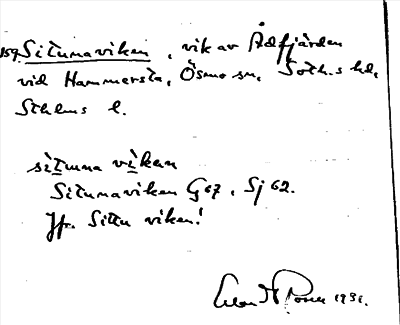 159. Situnaviken, vik av Ådfjärden
vid Hammersta, Ösmo sn, Soth.s hd,
Sthlms l.
situna viken
Situnaviken G 67, Sj 62.
Jfr. Sittu viken!
1931.